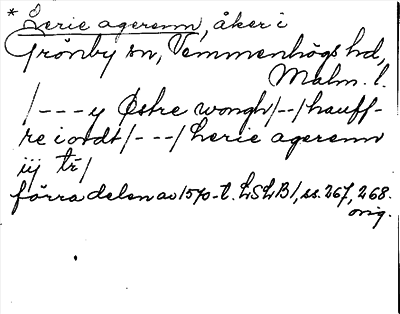 * Lerie agerenn, åker i
Grönby sn, Vemmenhögs hd,
Malm. l.
/---y Østre wongh/--/hauff-
re i ordt/---/Lerie agerenn
iij tr/
förra delen av 1570-t. LSLB1, ss. 267, 268.
orig.